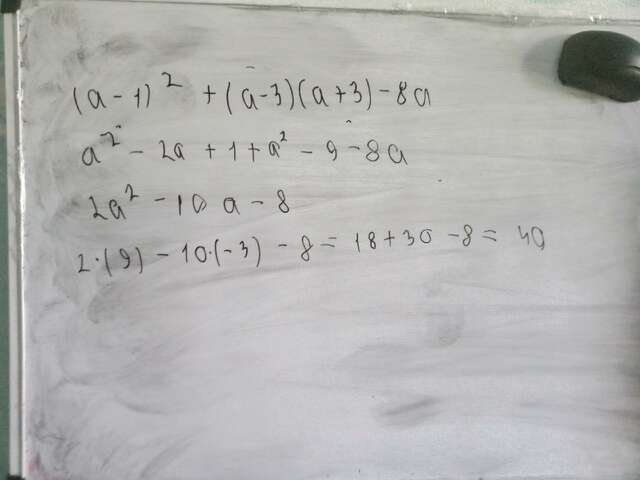 (a - 1)² + (a - 3)(a + 3) - 8a
a² - 2a + 1 + a² - 9 - 8a
2a² - 10a - 8
2·(9) - 10·(-3) - 8 = 18 + 30 - 8 = 40